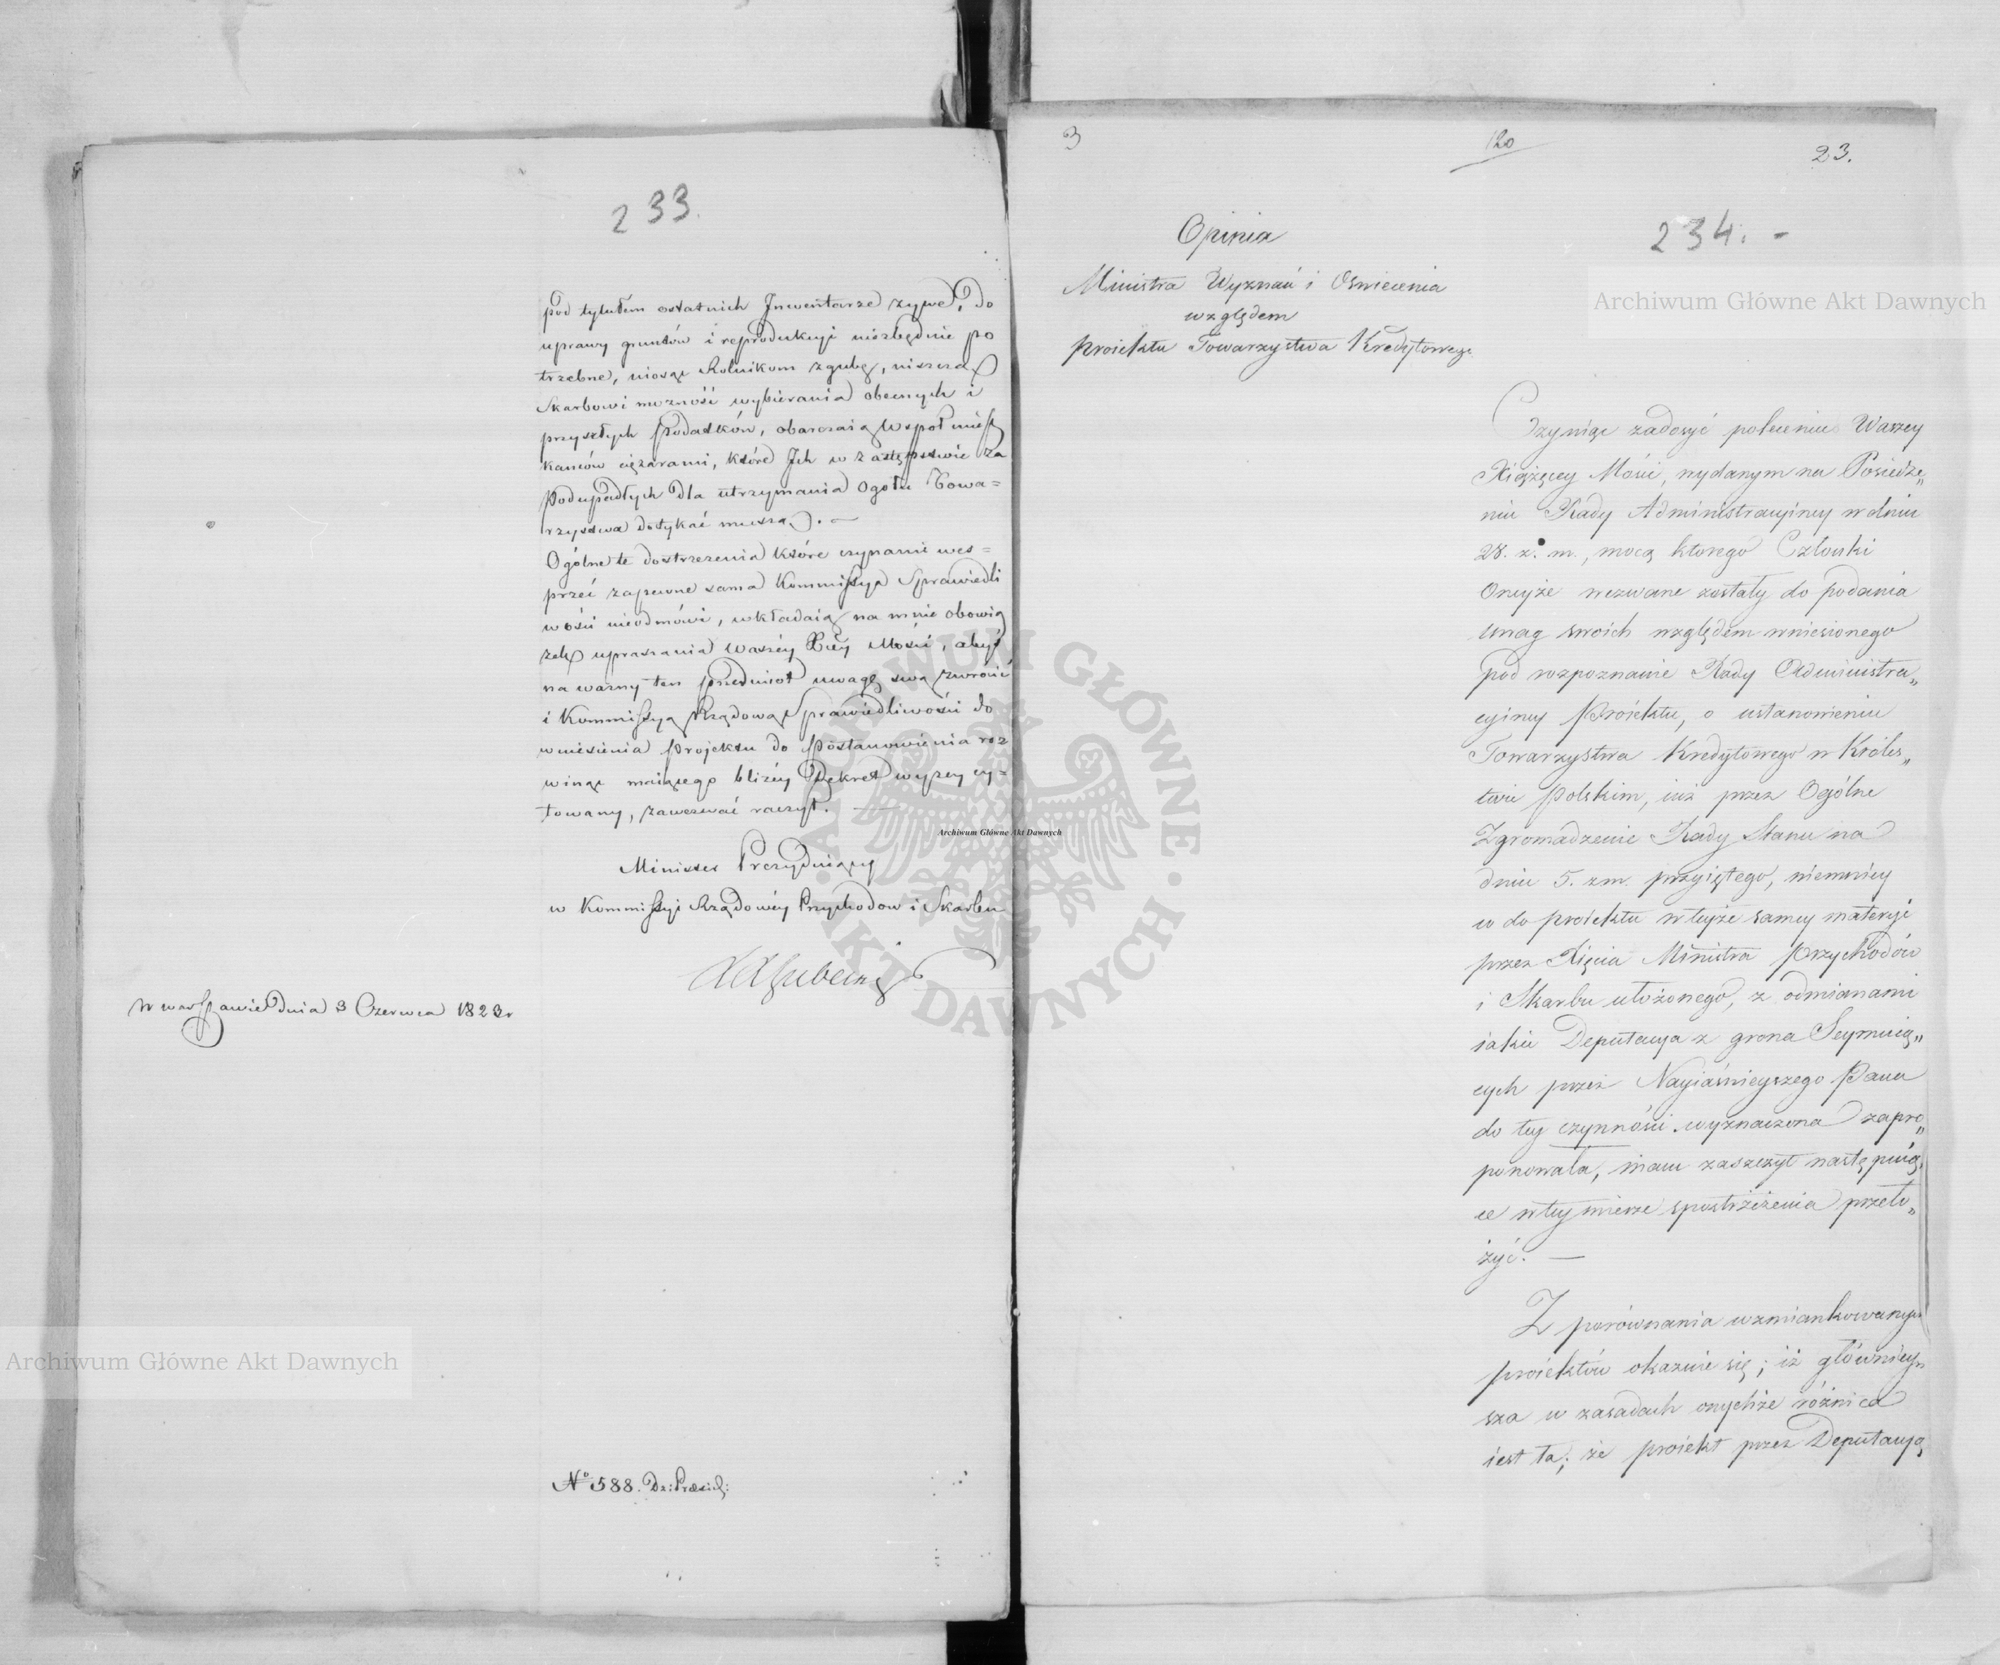 233.
Pod tytułem ostatnich Inwentarze zywe, do
uprawy gruntów i reprodukcyi niezbędnie po
trzebne, niosąc Rolnikom zgubę, niszczą
Skarbowi możność wybierania obecnych i
przyszłych Podatków, obarczaią Współmiesz
kańców ciężarami, które Ich w zastępstwie za
Podupadłych dla utrzymania ogółu Towa=
rzystwa dotykać muszą. —
Ogólne te dostrzeżenia które czynami wes=
przeć zapewne sama Kommissya Sprawiedli
wości nieodmówi, wkładaią na mnie obowią
zek upraszania Waszéy Xcéy Mości, abyś
na ważny ten przedmiot uwagę swą zwrócić
i Kommissyą Rządową Sprawiedliwości do
wniesienia Projektu do Postanowienia roz
winąć maiącego bliżéy Dekret wyzey cy=
towany, zawezwać raczył. —
Minister Prezyduiący
w Kommissyi Rządowéy Przychodow i Skarbu
XLubecki
w Warszawie Dnia 3 Czerwca 1823r
No 588. Dz: Prezid:
3
120
23.
234. -
Opinia
Ministra Wyznań i Oświecenia
względem
Proiektu Towarzystwa Kredytowego
Czyniąc zadosyć poleceniu Waszey
Xiążęcey Mości, wydanym na Posiedze„
niu Rady Administracyiney w dniu
28. z. m., mocą którego Członki
Oneyże wezwane zostały do podania
uwag swoich względem wniesionego
pod rozpoznanie Rady Administra„
cyiney Proiektu, o ustanowieniu
Towarzystwa Kredytowego w Króles„
twie Polskim, iuż przez Ogólne
Zgromadzenie Rady Stanu na
dniu 5. zm. przyiętego, niemniey
co do proiektu w teyże samey materyi
przez Xięcia Ministra Przychodów
i Skarbu ułożonego, z odmianami
iakie Deputacya z grona Seymuią„
cych przez Nayiaśnieyszego Pana
do tey czynności wyznaczona zapro„
ponowała, mam zaszczyt następuią„
ce w tey mierze spostrzeżenia przeło„
żyć. —
Z porównania wzmiankowanych
proiektów okazuie się; iż główniey„
sza w zasadach onychże różnica
iest ta; że proiekt przez Deputacyą
Archiwum Główne Akt Dawnych
Archiwum Główne Akt Dawnych
Archiwum Główne Akt Dawnych
· ARCHIWUM GŁÓWNE · AKT DAWNYCH